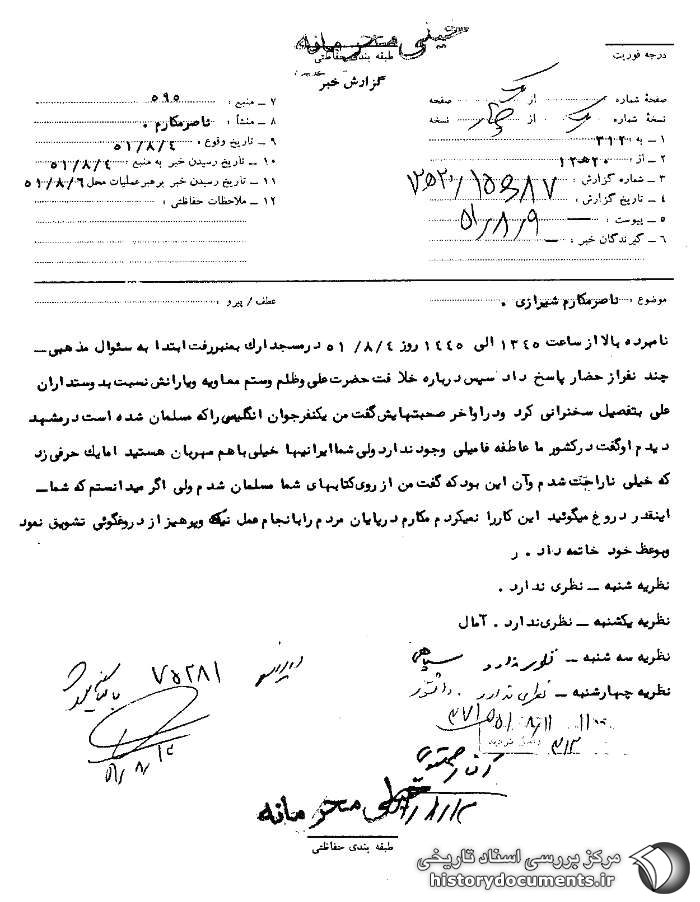 خیلی محرمانه
طبقه بندی حفاظتی
درجه فوریت
گزارش خبر
صفحه شماره یک از یک صفحه
نسخهٔ شماره یک از چهار نسخه
۱ ــ به ۳۱۲
۲ ــ از ۱۲ﻫ۲۰
۳ ــ شماره گزارش :
۴ ــ تاریخ گزارش : ۵۱/۸/۹
۵ ــ پیوست : ــ
۶ ــ گیرندگان خبر : ــ
۷ ــ منبع : ۵۹۵
۸ ــ منشأ : ناصر مکارم .
۹ ــ تاریخ وقوع : ۵۱/۸/۴
۱۰ ــ تاریخ رسیدن خبر به منبع : ۵۱/۸/۴
۱۱ ــ تاریخ رسیدن خبر برهبر عملیات محل ۵۱/۸/۶
۱۲ ــ ملاحظات حفاظتی :
موضوع : ناصر مکارم شیرازی .
عطف / پیرو :
نامبرده بالا از ساعت ۱۳۴۵ الی ۱۴۴۵ روز ۵۱/۸/۴ در مسجد ارك بمنبر رفت ابتدا به سئوال مذهبی ــ
چند نفر از حضار پاسخ داد سپس درباره خلافت حضرت علی و ظلم و ستم معاویه و یارانش نسبت بدوستداران
علی بتفصیل سخنرانی کرد و در اواخر صحبتهایش گفت من یکنفر جوان انگلیسی را که مسلمان شده است در مشهد
دیدم او گفت در کشور ما عاطفه فامیلی وجود ندارد ولی شما ایرانیها خیلی با هم مهربان هستید اما یك حرفی زد
که خیلی ناراحت شدم و آن این بود که گفت من از روی کتابهای شما مسلمان شدم ولی اگر میدانستم که شما ــ
اینقدر دروغ میگوئید این کار را نمیکردم مکارم در پایان مردم را بانجام عمل نیك و پرهیز از دروغگوئی تشویق نمود
و بوعظ خود خاتمه داد . ر
نظریه شنبه ــ نظری ندارد .
نظریه یکشنبه ــ نظری ندارد . آمال
نظریه سه شنبه ــ نظری ندارد سپاهی
نظریه چهارشنبه ــ نظری ندارد . دانشور
۷۵۲۸۱
بایگانی شود
۵۱/۸/۱۱
۳۱۲
خیلی محرمانه
طبقه بندی حفاظتی
مرکز بررسی اسناد تاریخی
historydocuments.ir